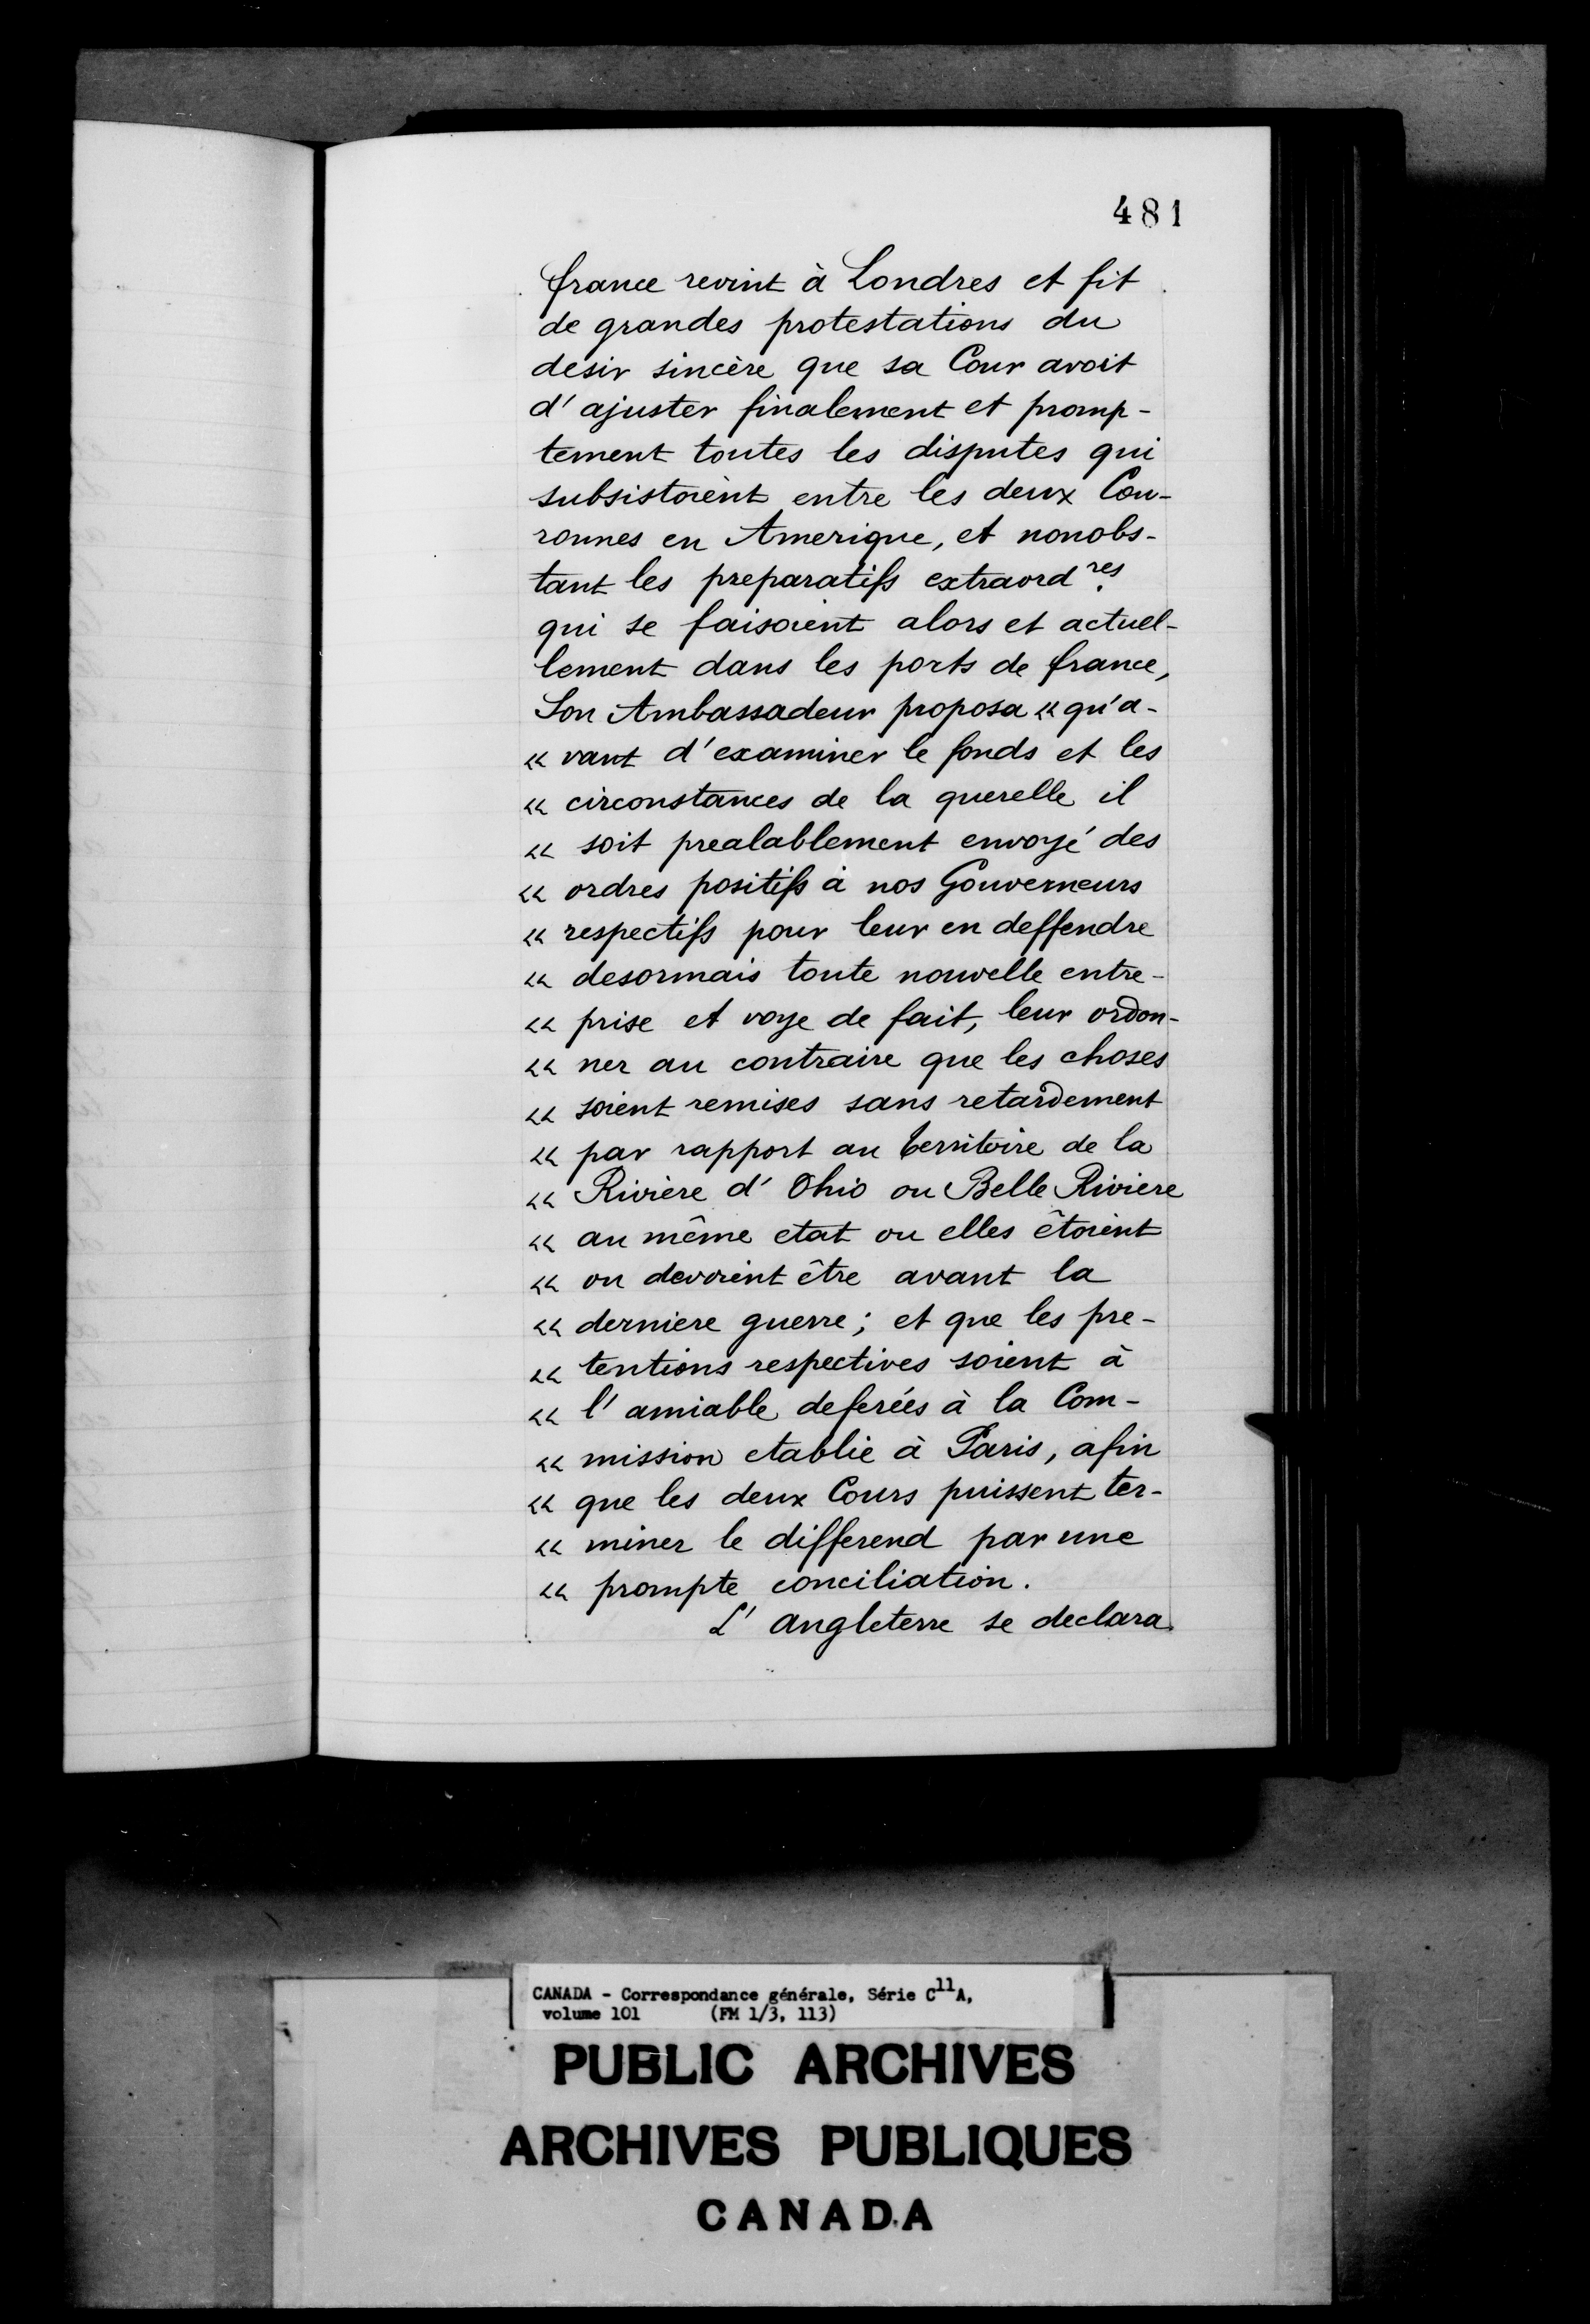 481
france revint à Londres et fit
de grandes protestations du
desir sincère que sa Cour avoit
d'ajuster finalement et promp-
tement toutes les disputes qui
subsistoient entre les deux Cou-
ronnes en Amerique, et nonobs-
tant les preparatifs extraord.res
qui se faisoient alors et actuel-
lement dans les ports de france,
Son Ambassadeur proposa « qu'a-
« vant d'examiner le fonds et les
« circonstances de la querelle il
« soit prealablement envoyé des
« ordres positifs à nos Gouverneurs
« respectifs pour leur en deffendre
« desormais toute nouvelle entre-
« prise et voye de fait, leur ordon-
« ner au contraire que les choses
« soient remises sans retardement
« par rapport au territoire de la
« Rivière d'Ohio ou Belle Riviere
« au même etat ou elles êtoient
« ou devoient être avant la
« derniere guerre; et que les pre-
« tentions respectives soient à
« l'amiable deferées à la Com-
« mission etablie à Paris, afin
« que les deux Cours puissent ter-
« miner le differend par une
« prompte conciliation.
L'angleterre se declara
CANADA - Correspondance générale, Série C11A,
volume 101 (FM 1/3, 113)
PUBLIC ARCHIVES
ARCHIVES PUBLIQUES
CANADA